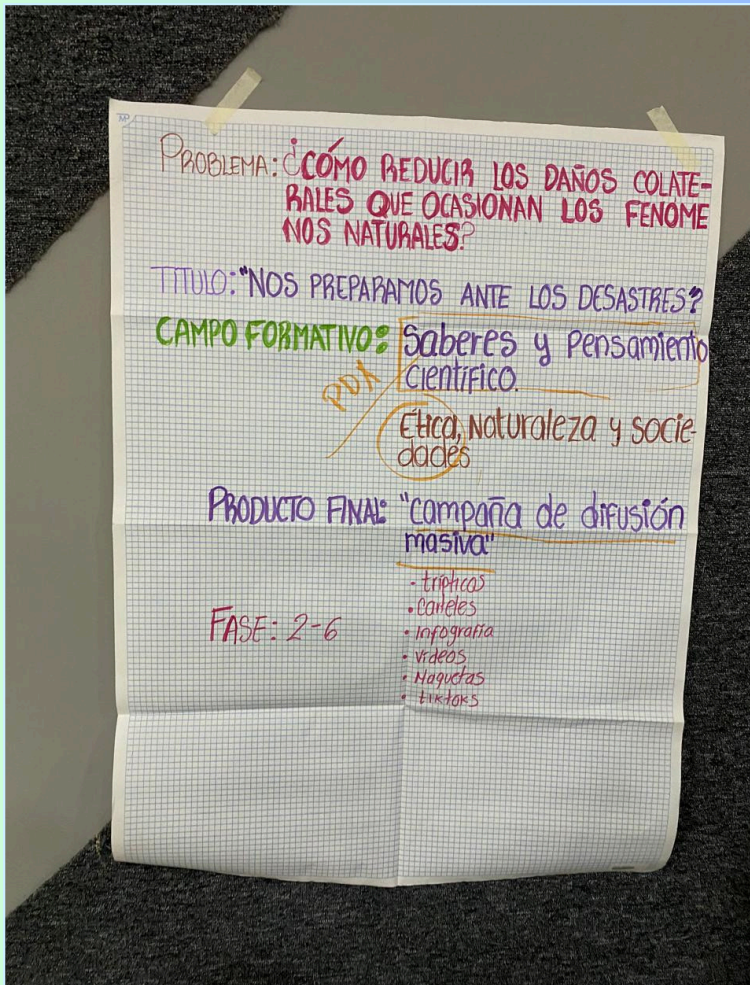 PROBLEMA: ¿CÓMO REDUCIR LOS DAÑOS COLATE-
RALES QUE OCASIONAN LOS FENOME
NOS NATURALES?
TITULO: "NOS PREPARAMOS ANTE LOS DESASTRES?
CAMPO FORMATIVO: Saberes y Pensamiento
científico.
PDA
Ética, Naturaleza y socie-
dades
PRODUCTO FINAL: "Campaña de difusión
masiva"
• trípticos
• Carteles
FASE: 2-6
• Infografía
• videos
• Maquetas
• tiktoks